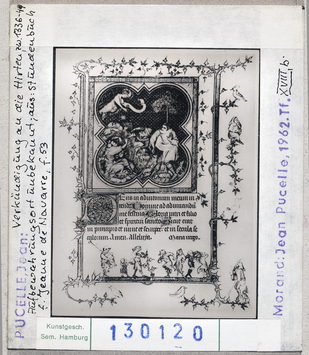 PUCELLE, Jean:
Verkündigung an die Hirten, zw. 1336-49
Aufbewahrungsort unbekannt; aus: Stundenbuch
f. Jeanne de Navarre, f. 53
Deus in adiutorium meum in
tende Domine ad adiuvandu
me festina Gloria patri et filio
et spiritui sancto Sicut erat
in principio et nunc et semper et in secula se
culorum Amen. Alleluia.
Morand: Jean Pucelle, 1962. Tf.
XVIII, b.
Kunstgesch.
Sem. Hamburg
130120